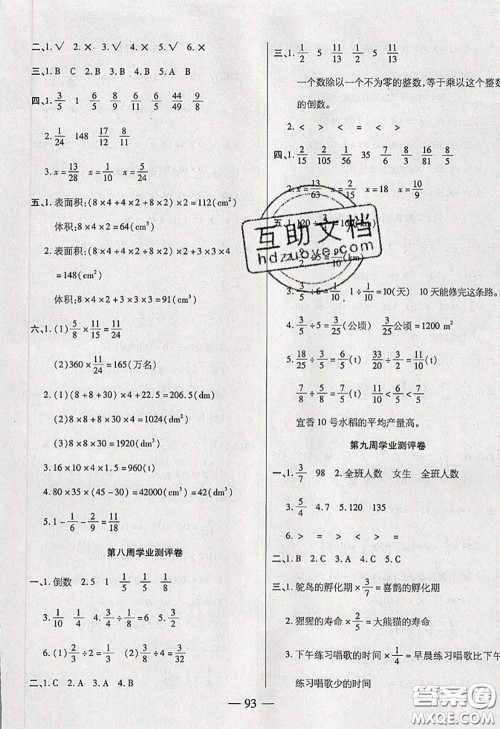 二、1.√ 2.× 3.√ 4.√ 5.√ 6.×
三、1.B C 2.B 3.B 4.B 5.A B
四、1. 3/5 1 5/8 8/9 6/5 44/49 9/8
2. 1/24 148 17/12 8/11
3.x=18/25 x=1/10 x=5/24
五、1.表面积:(8×4+4×2+8×2)×2=112(cm²)
体积:8×4×2=64(cm³)
2.表面积:(8×4+8×2+4×2)×2+3×3×4
=148(cm²)
体积:8×4×2+3×3×3=91(cm³)
六、1.(1) 5/8×11/15=11/24
(2)360×11/24=165(万名)
2.(1)(8+8+30)×4+22.5=206.5(dm)
(2)8×8+8×30×4=1024(dm²)
(3)8×8×30=1920(dm³)
3.16×10×4×1.5=960(t)
4.80×35×(45-30)=42000(cm³)=42(dm³)
5.1-1/6-2/9=11/18
第八周学业测评卷
一、1.倒数 2.5 1 1/5 1/8 3/5
3. 1/10 1/4 4. 3/8 5. 3/2
6.(1) 2/3÷2=1/3 (2) 3/5÷2/5=3/2
二、1.C 2.A 3.A 4.B 5.C
三、1. 1/2 5 11/13 1/2 5 11/13
一个数除以一个不为零的整数,等于乘以这个整数
的倒数。
2.< > < =
四、1. 2/15 56/105 1/56 35 7/8 11/6 16/81 4/15
2.x=13/63 x=2/15 x=18 x=10/9
3.1÷1/10=10(天) 10天能修完这条路。
4. 5/8÷5=3/25(公顷) 3/25公顷=1200 m²
5. 18/25÷3/5=6/5(t) 33/20÷3/2=11/10(t)
7/8÷5/8=7/5(t) 11/10<6/5<7/5
宜香10号水稻的平均产量高。
第九周学业测评卷
一、1. 3/7 98 2.全班人数 女生 全班人数
3. 3/5 4.5 5.120 135
6.> > = < > <
二、1.B 2.C 3.A 4.B 5.A
三、1.鸵鸟的孵化期×3/7=喜鹊的孵化期
2.猩猩的寿命×2/5=大熊猫的寿命
3.下午练习唱歌的时间×1/4=早晨练习唱歌比下午
练习唱歌少的时间
互助文档
hdzuoye.com
— 93 —
答案圈
MXQE.COM